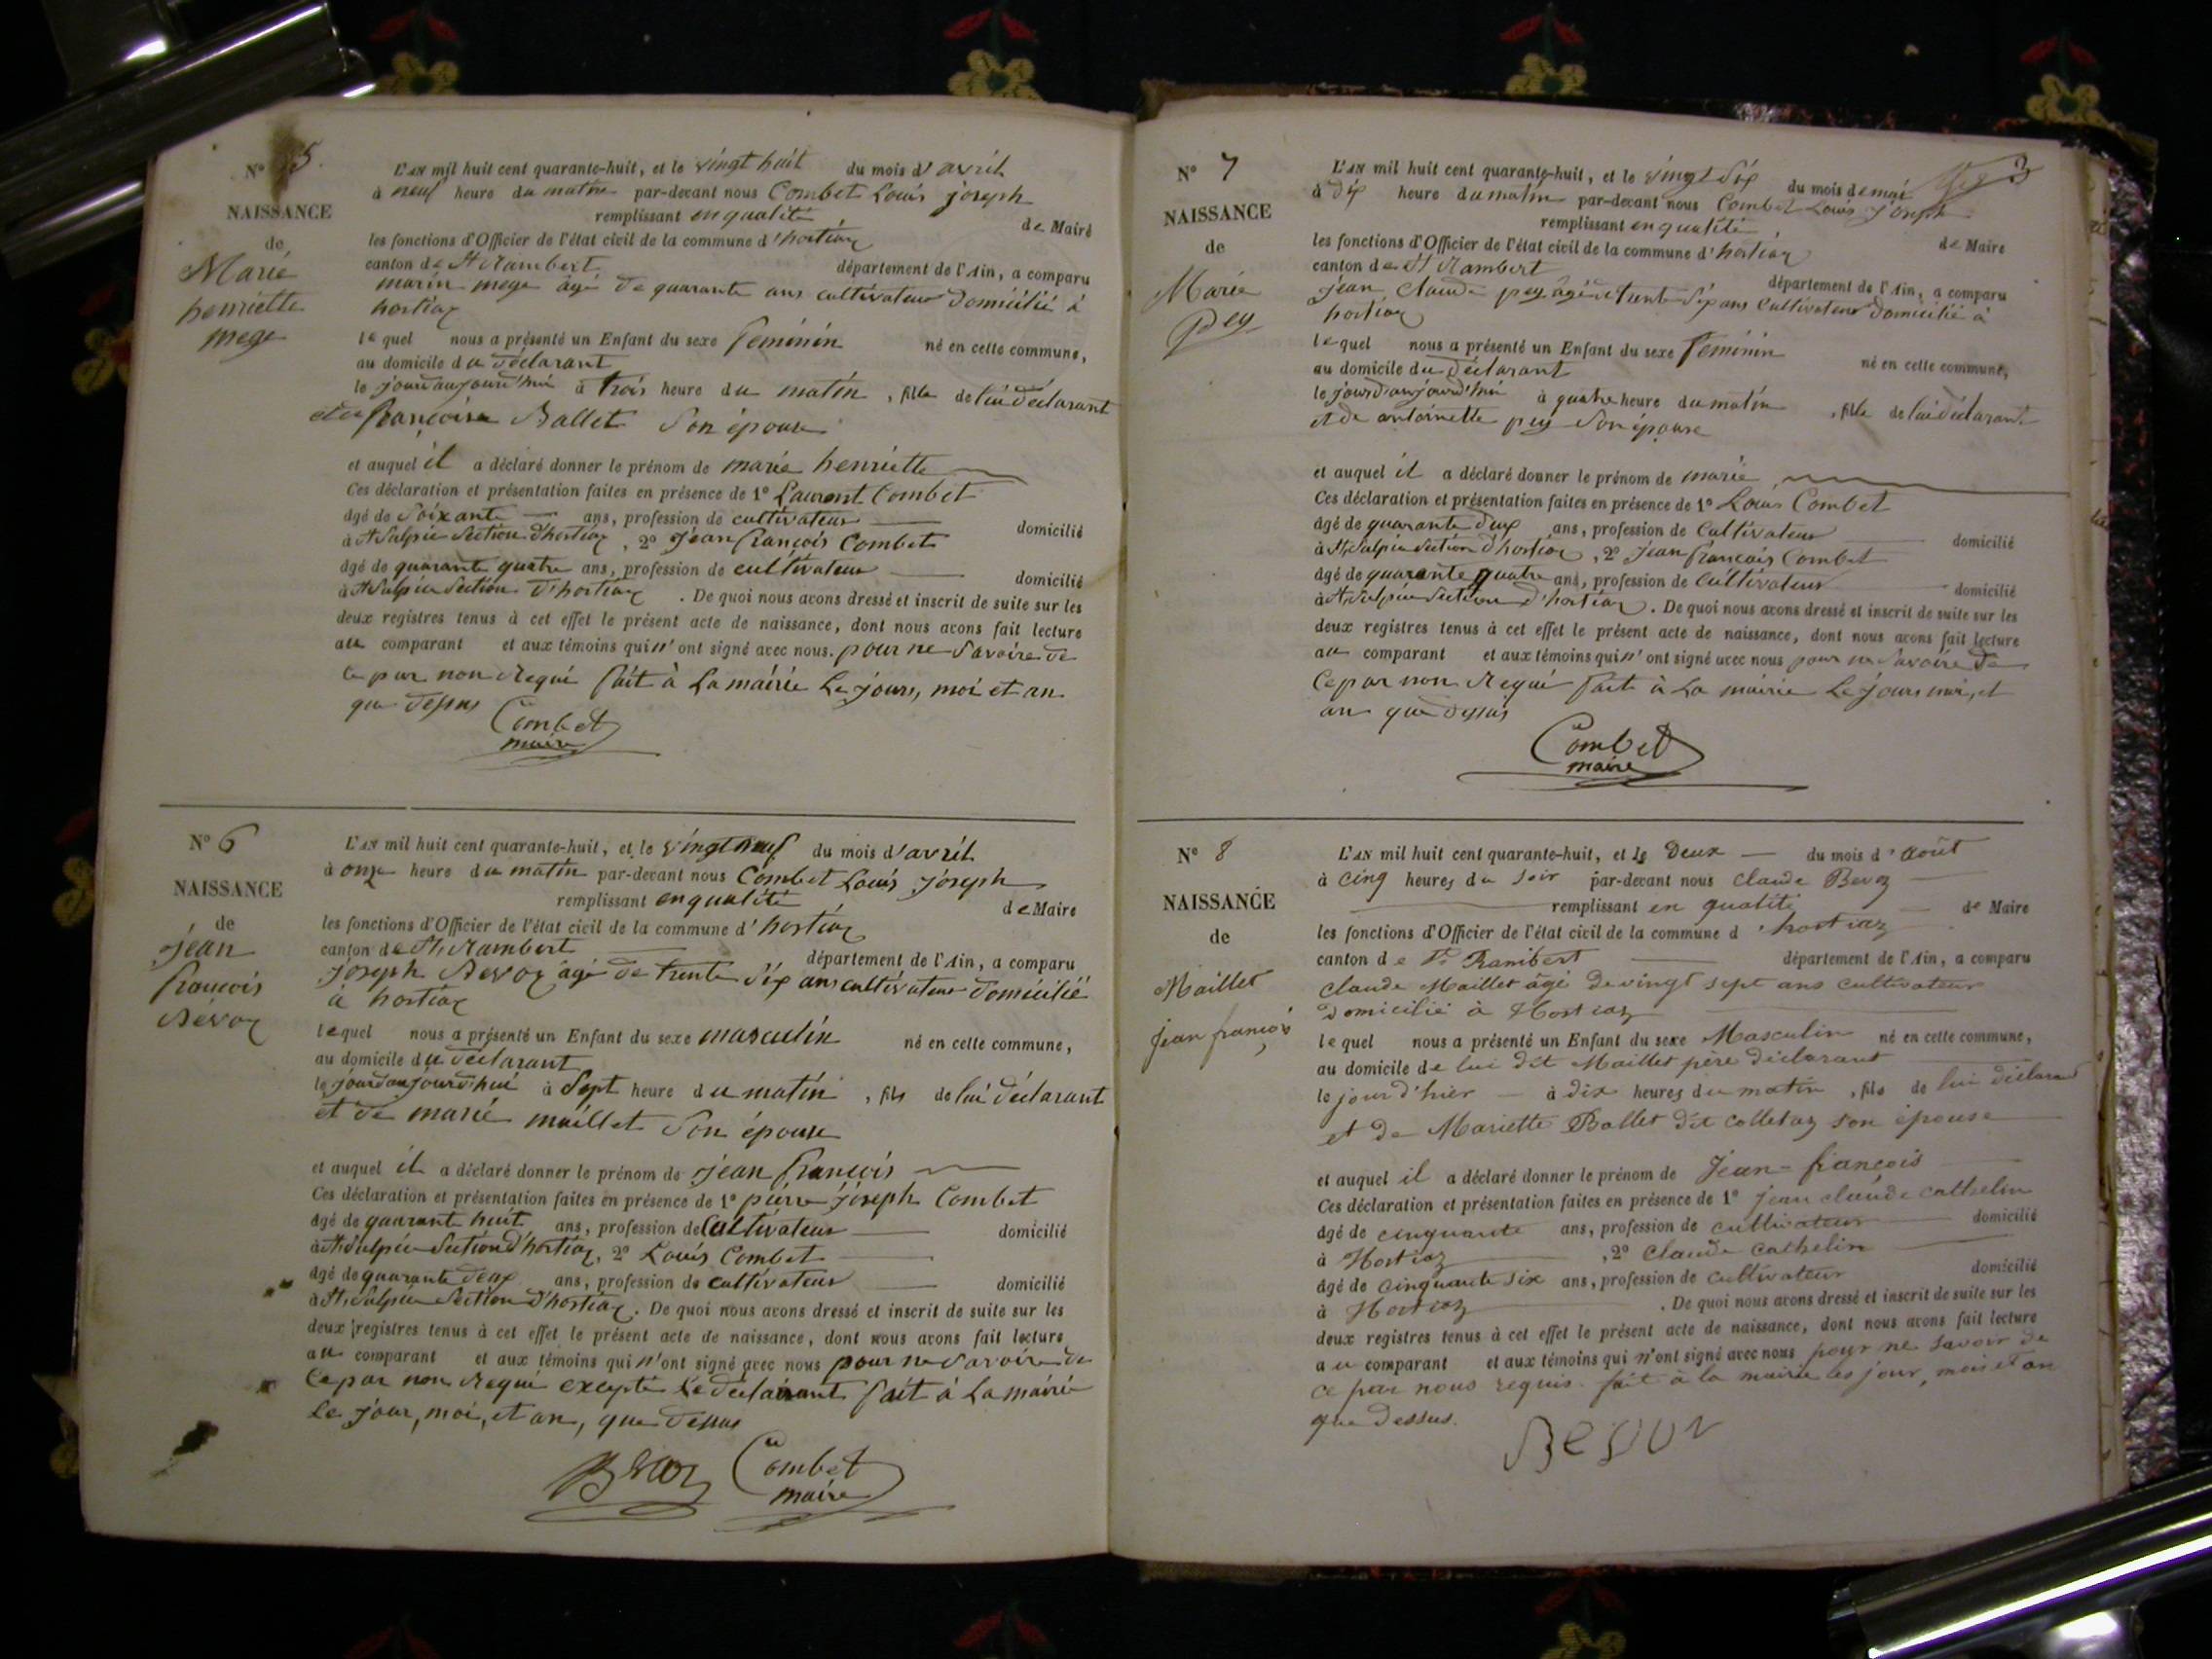 N° 5.
NAISSANCE
de
Marie
henriette
mege
L'AN mil huit cent quarante-huit, et le vingt huit du mois d'avril
à neuf heure du matin par-devant nous Combet Louis joseph
remplissant en qualité de Maire
les fonctions d'Officier de l'état civil de la commune d'hortiaz
canton de St Rambert département de l'Ain, a comparu
marin mege âgé de quarante ans cultivateur domicilié à
hortiaz
lequel nous a présenté un Enfant du sexe feminin né en cette commune,
au domicile du déclarant
le jour aujourd'hui à trois heure du matin, fille de lui déclarant
et de françoise Ballet Son épouse
et auquel il a déclaré donner le prénom de marie henriette
Ces déclaration et présentation faites en présence de 1° Laurent Combet
âgé de Soixante ans, profession de cultivateur domicilié
à St Sulpice Section d'hortiaz, 2° Jean françois Combet
âgé de quarante quatre ans, profession de cultivateur domicilié
à St Sulpice Section d'hortiaz. De quoi nous avons dressé et inscrit de suite sur les
deux registres tenus à cet effet le présent acte de naissance, dont nous avons fait lecture
au comparant et aux témoins qui n'ont signé avec nous. pour ne Savoire de
ce par non Requi fait à La mairie Le jours, moi et an
que dessus
Combet
maire
N° 6
NAISSANCE
de
jean
francois
Bevoz
L'AN mil huit cent quarante-huit, et le vingt neuf du mois d'avril
à onze heure du matin par-devant nous Combet Louis joseph
remplissant en qualité de Maire
les fonctions d'Officier de l'état civil de la commune d'hortiaz
canton de St, Rambert département de l'Ain, a comparu
joseph Bevoz âgé de trente Six ans cultivateur domicilié
à hortiaz
lequel nous a présenté un Enfant du sexe masculin né en cette commune,
au domicile du déclarant
le jourdaujourd'hui à Sept heure du matin, fils de lui déclarant
et de marie maillet Son épouse
et auquel il a déclaré donner le prénom de jean françois
Ces déclaration et présentation faites en présence de 1° pierre joseph Combet
âgé de quarante huit ans, profession de Cultivateur domicilié
à St Sulpice Section d'hortiaz, 2° Louis Combet
âgé de quarante deux ans, profession de cultivateur domicilié
à St, Sulpice Section d'hortiaz. De quoi nous avons dressé et inscrit de suite sur les
deux registres tenus à cet effet le présent acte de naissance, dont nous avons fait lecture
au comparant et aux témoins qui n'ont signé avec nous pour ne Savoire de
Ce par non Requi excepté Le déclarant fait à La mairie
Le jour, moi, et an, que dessus
Bevoz
Combet
maire
N° 7
NAISSANCE
de
Marie
pey
3
L'AN mil huit cent quarante-huit, et le vingt Six du mois de mai
à dix heure du matin par-devant nous Combet Louis Joseph
remplissant en qualité de Maire
les fonctions d'Officier de l'état civil de la commune d'hortiaz
canton de St Rambert département de l'Ain, a comparu
jean Claude pey âgé de trente Six ans Cultivateur domicilié à
hortiaz
lequel nous a présenté un Enfant du sexe feminin né en cette commune,
au domicile du déclarant
le jourdaujourd'hui à quatre heure du matin, fille de lui déclarant
et de antoinette pey Son épouse
et auquel il a déclaré donner le prénom de marie
Ces déclaration et présentation faites en présence de 1° Louis Combet
âgé de quarante deux ans, profession de Cultivateur domicilié
à St, Sulpice Section d'hortiaz, 2° Jean francois Combet
âgé de quarante quatre ans, profession de Cultivateur domicilié
à St, Sulpice Section d'hortiaz. De quoi nous avons dressé et inscrit de suite sur les
deux registres tenus à cet effet le présent acte de naissance, dont nous avons fait lecture
au comparant et aux témoins qui n'ont signé avec nous pour ne Savoire de
Ce par non Requi fait à La mairie Le jours moi, et
an que dessus
Combet
maire
N° 8
NAISSANCE
de
Maillet
jean françois
L'AN mil huit cent quarante-huit, et le Deux du mois d'Août
à cinq heures du soir par-devant nous claude Bevoz
remplissant en qualité de Maire
les fonctions d'Officier de l'état civil de la commune d'hostiaz
canton de St Rambert département de l'Ain, a comparu
claude Maillet âgé de vingt sept ans cultivateur
domicilié à Hostiaz
lequel nous a présenté un Enfant du sexe Masculin né en cette commune,
au domicile de lui dit Maillet père déclarant
le jour d'hier à dix heures du matin, fils de lui déclarant
et de Mariette Ballet dit colletaz son épouse
et auquel il a déclaré donner le prénom de Jean-françois
Ces déclaration et présentation faites en présence de 1° jean claude cathelin
âgé de cinquante ans, profession de cultivateur domicilié
à Hostiaz, 2° claude cathelin
âgé de cinquante six ans, profession de cultivateur domicilié
à Hostiaz. De quoi nous avons dressé et inscrit de suite sur les
deux registres tenus à cet effet le présent acte de naissance, dont nous avons fait lecture
au comparant et aux témoins qui n'ont signé avec nous pour ne savoir de
ce par nous requis. fait à la mairie les jour, mois et an
que dessus.
Bevoz